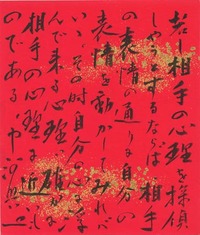 若し相手の心理を探偵
しやうとするならば相手
の表情の通り自分の
表情を動かしてみれば
いゝその時自分の心に
んで来る心理
相手の心理に近い
のである 中河與一